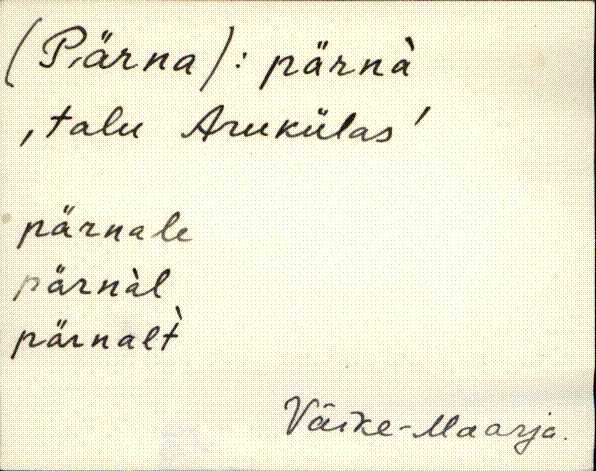 (Pärna): pärnà
‚talu Arukülas’
pärnale
pärnàl
pärnalt̀
Väike-Maarja.